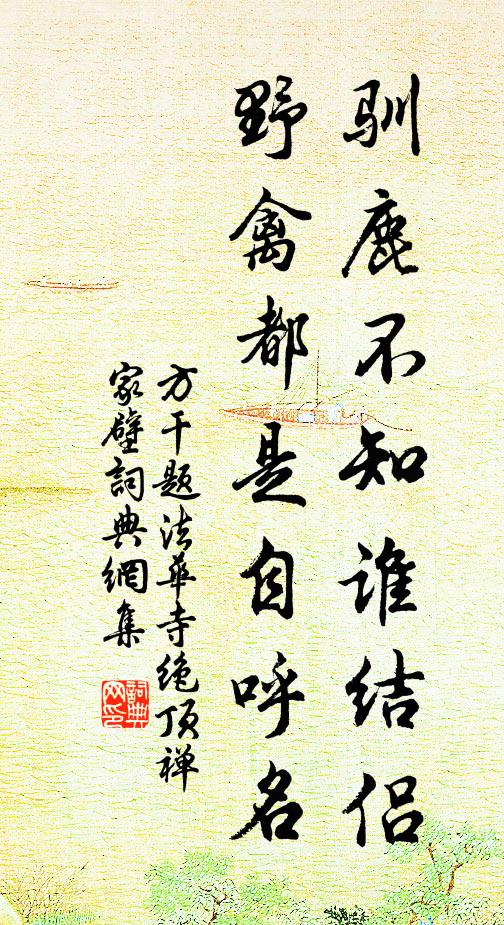 驯鹿不知谁结侣
野禽都是自呼名
方干题法華寺绝顶禅
家壁詞典網集
詞典
网印